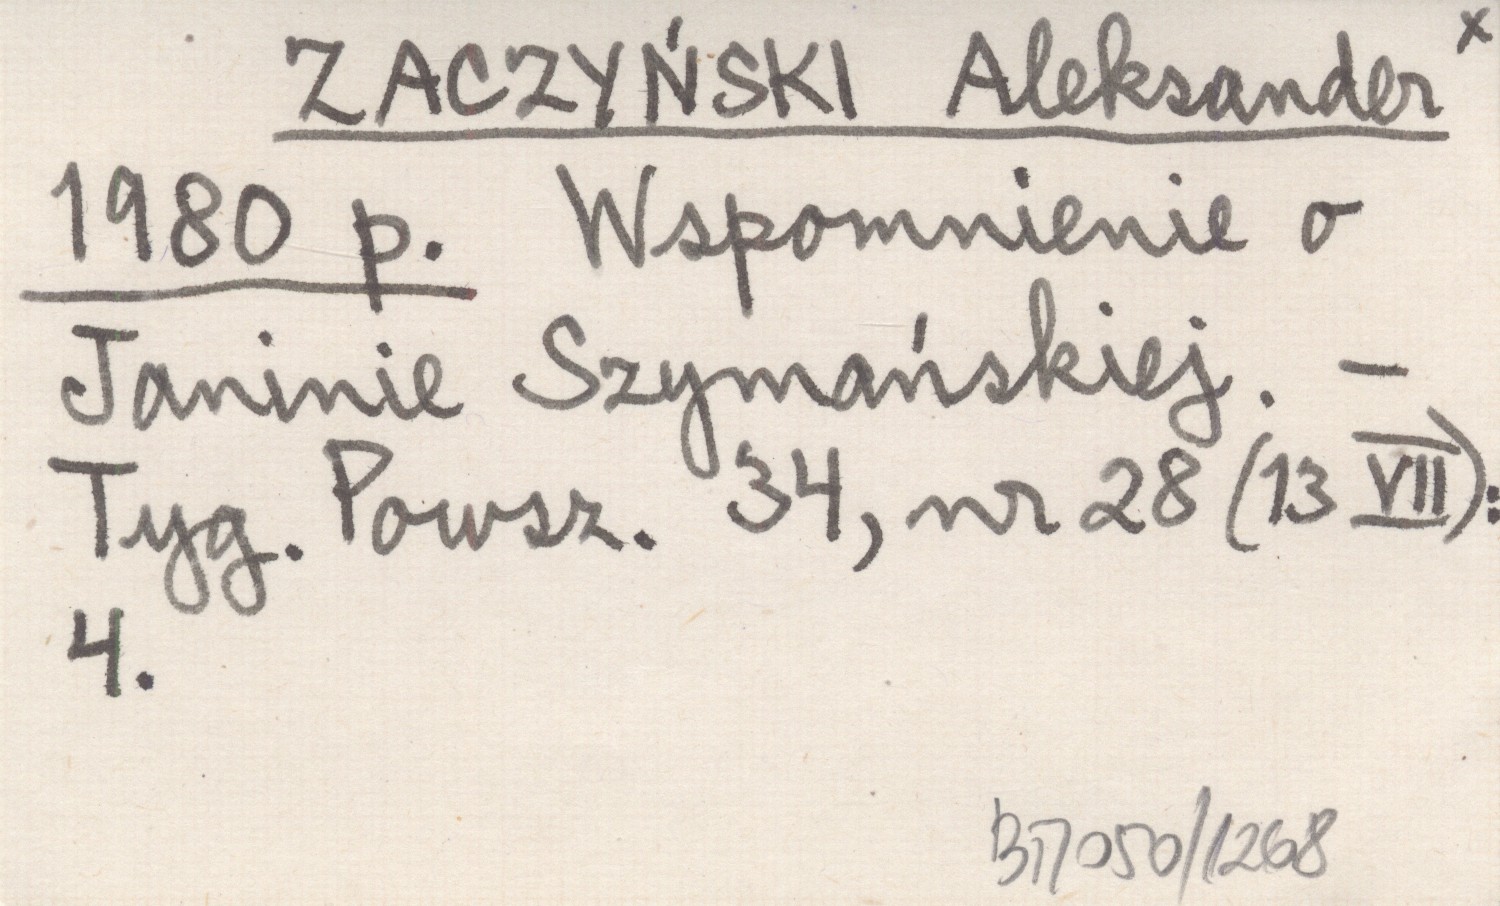 ZACZYŃSKI Aleksander x
1980 p. Wspomnienie o
Janinie Szymańskiej. –
Tyg. Powsz. 34, nr 28 (13 VII):
4.